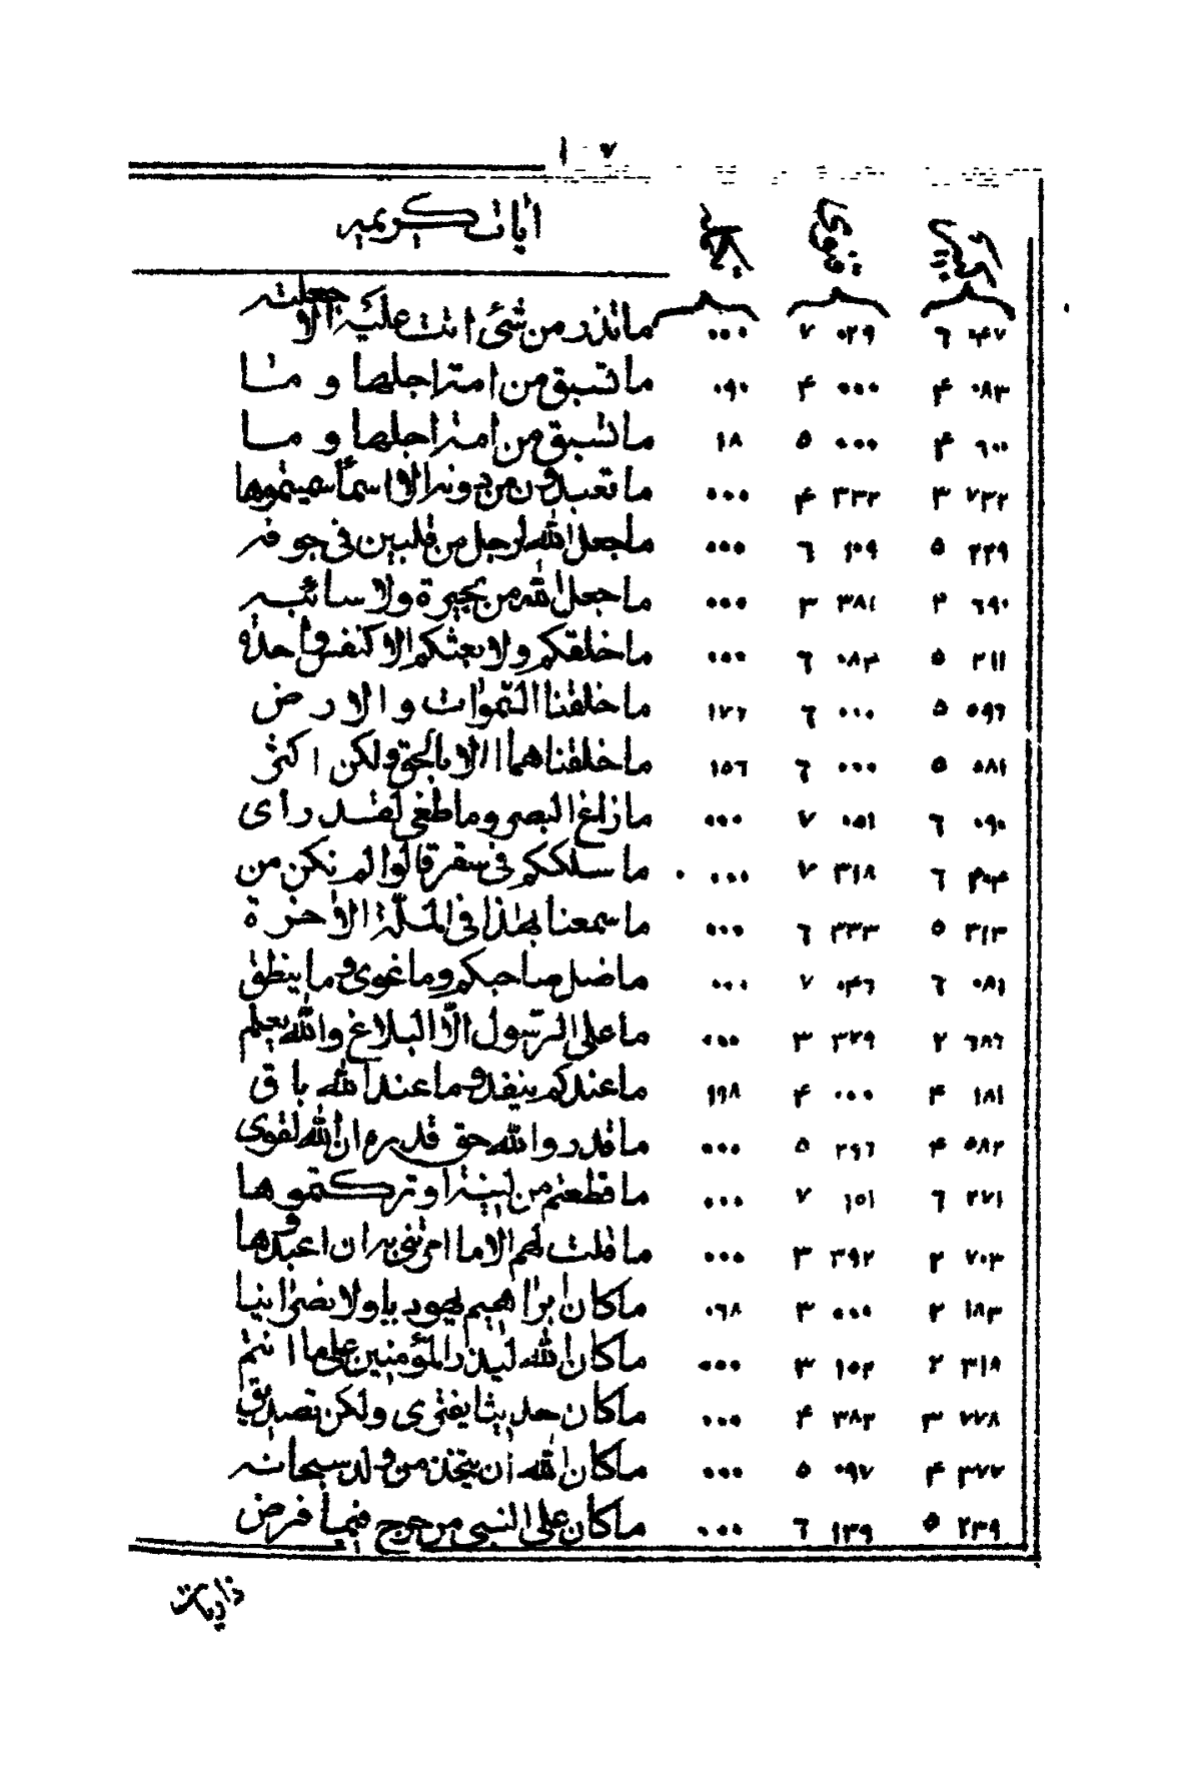 ١٠٧
آيات كريمه
٠٤٧ ٦ ٠٢٩ ٧ ٠٠٠ ماتذر من شئ اتت عليه الا جعلته
٠٨٣ ۴ ٠٠٠ ۴ ٠٩٠ ماتسبق من امة اجلها و مــا
٦٠٠ ۴ ٠٠٠ ٥ ١٨ ماتسبق من امة اجلها و مــا
٧٣٢ ٣ ٣٣٢ ۴ ٠٠٠ ماتعبدون من دونه الا اسمآء سميتموها
٢٢٩ ٥ ١٠٩ ٦ ٠٠٠ ماجعل الله لرجل من قلبين فى جوفه
٦٩٠ ٢ ٣٨١ ٣ ٠٠٠ ماجعل الله من بحيرة ولا سائبه
٢١١ ٥ ٠٨٣ ٦ ٠٠٠ ماخلقكم ولا بعثكم الا كنفس واحدة
٥٩٦ ٥ ٠٠٠ ٦ ١٧٦ ماخلقنا السموات و الارض
٠٨١ ٥ ٠٠٠ ٦ ١٥٦ ماخلقناهما الا بالحق ولكن اكثر
٠٩٠ ٦ ٠٥١ ٧ ٠٠٠ مازاغ البصر وماطغى لقد راى
٦ ٣١٨ ٧ ٠٠٠ ماسلككم فى سقر قالوا لم نكن من
٣١٣ ٥ ٣٣٣ ٦ ٠٠٠ ماسمعنا بهذا فى الملة الاخرة
٠٨١ ٦ ٠۴٦ ٧ ٠٠٠ ماضل صاحبكم وماغوى وماينطق
٦٨٦ ٢ ٣٢٩ ٣ ٠٠٠ ماعلى الرسول الا البلاغ والله يعلم
١٨١ ۴ ٠٠٠ ۴ ١٦٨ ماعندكم ينفد وماعند الله باق
٥٨٢ ۴ ٢٩٦ ٥ ٠٠٠ ماقدروا الله حق قدره ان الله لقوى
٢٧١ ٦ ١٥١ ٧ ٠٠٠ ماقطعتم من لينة او تركتموها
٧٠٣ ٢ ٣٩٢ ٣ ٠٠٠ ماقلت لهم الا ما امرتنى به ان اعبدوها
١٨٣ ٢ ٠٠٠ ٣ ٠٦٨ ماكان ابراهيم يهوديا ولا نصرانيا
٣١٨ ٢ ١٥٢ ٣ ٠٠٠ ماكان الله ليذر المؤمنين على ما انتم
٧٧٨ ٣ ٣٨٣ ۴ ٠٠٠ ماكان حديثا يفترى ولكن تصديق
٣٧٧ ۴ ٠٩٧ ٥ ٠٠٠ ماكان لله ان يتخذ من ولد سبحانه
٢٣٩ ٥ ١٣٩ ٦ ٠٠٠ ماكان على النبى من حرج فيما فرض